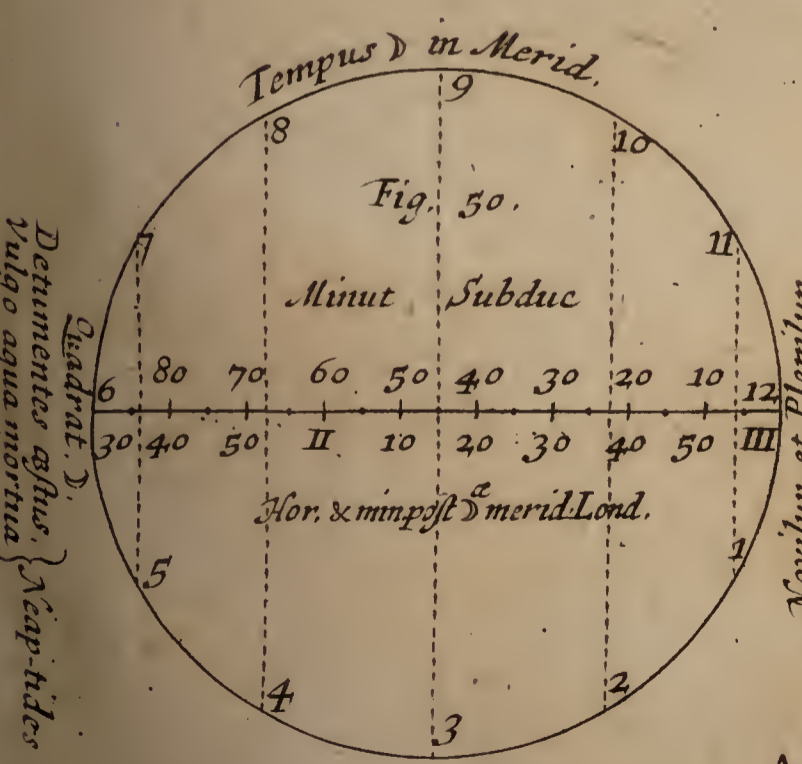 Tempus ☽ in Merid.
9
8
10
Fig. 50.
7
11
Minut Subduc
6 80 70 60 50 40 30 20 10 12
30 40 50 II 10 20 30 40 50 III
Hor. & min post ☽æ merid. Lond.
5
1
4
2
3
Quadrat. ☽.
Detumentes æstus. } Neap-tides
Vulgo aqua mortua
Novilun et Plenilun